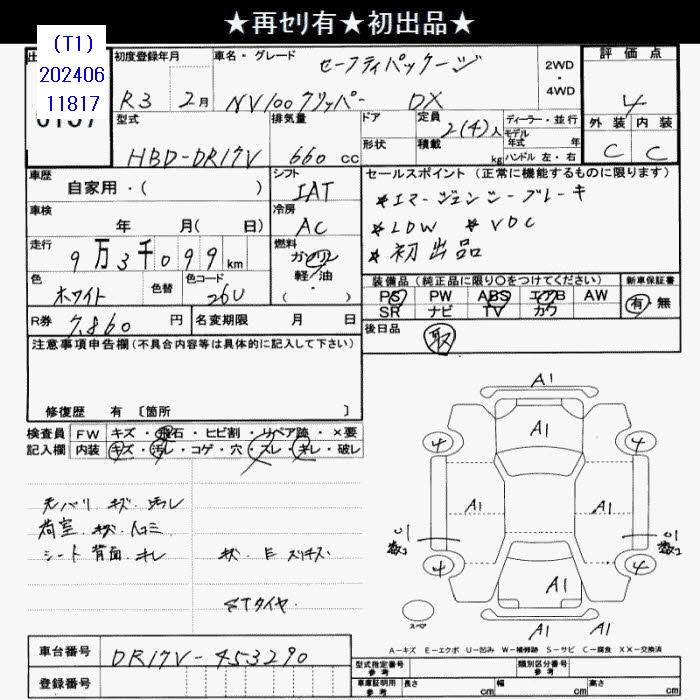 ★再セリ有★初出品★
(T1)
202406
11817
初度登録年月
R3 2月
車名・グレード
セーフティパッケージ
NV100クリッパー DX
2WD
・
4WD
評価点
4
外装 内装
C C
型式
HBD-DR17V
排気量
660 cc
ドア
形状
定員 2(4)人
積載 kg
ディーラー・並行
モデル
年式 年
ハンドル 左・右
車歴
自家用・( )
シフト
IAT
車検
年 月( 日)
冷房
AC
走行
9万3千099km
燃料
ガソリン
軽油
・
( )
色
ホワイト
色替
色コード
26U
R券 7,860 円
名変期限 月 日
セールスポイント(正常に機能するものに限ります)
*エマージェンシーブレーキ
*LDW *VDC
*初出品
装備品(純正品に限り〇をつけてください)
新車保証書
PS PW ABS エアB AW
SR ナビ TV カワ
有・無
後日品
取
注意事項申告欄(不具合内容等は具体的に記入して下さい)
修復歴 有〔箇所 〕
検査員 FW キズ・飛石・ヒビ割・リペア跡・×要
記入欄 内装 キズ・汚レ・コゲ・穴・スレ・キレ・破レ
荷室 キズ
シート背面 キレ
STタイヤ
A1
A1
4 4
A1 A1
4 4
A1
A1 A1
スペア
A-キズ E-エクボ U-凹み W-補修跡 S-サビ C-腐食 XX-交換済
車台番号 DR17V-453290
登録番号
型式指定番号
参考
類別区分番号
参考
車庫証明用
参考
長さ cm 幅 cm 高さ cm